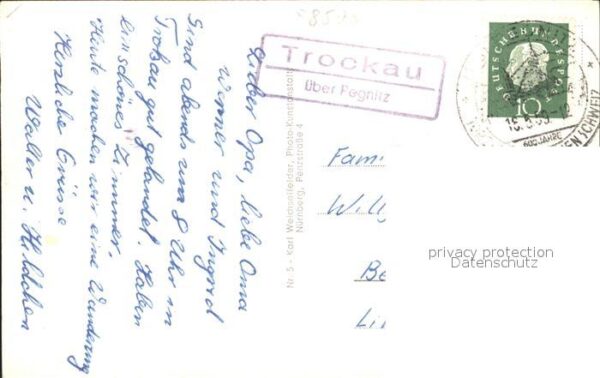 Lieber Opa, liebe Oma
Werner und Ingrid
Sind abends um 8 Uhr in
Trokau gut gelandet. Haben
ein schönes Zimmer.
Heute machen wir eine Wanderung
Herzliche Grüsse
Walter u.
Trockau
über Pegnitz
Nr. 5 - Karl Weichselfelder, Photo-Kunstanstalt
Nürnberg, Penzstraße 4
DEUTSCHE BUNDESPOST
10
600 JAHRE
Fam
Will
Be
Li
privacy protection
Datenschutz